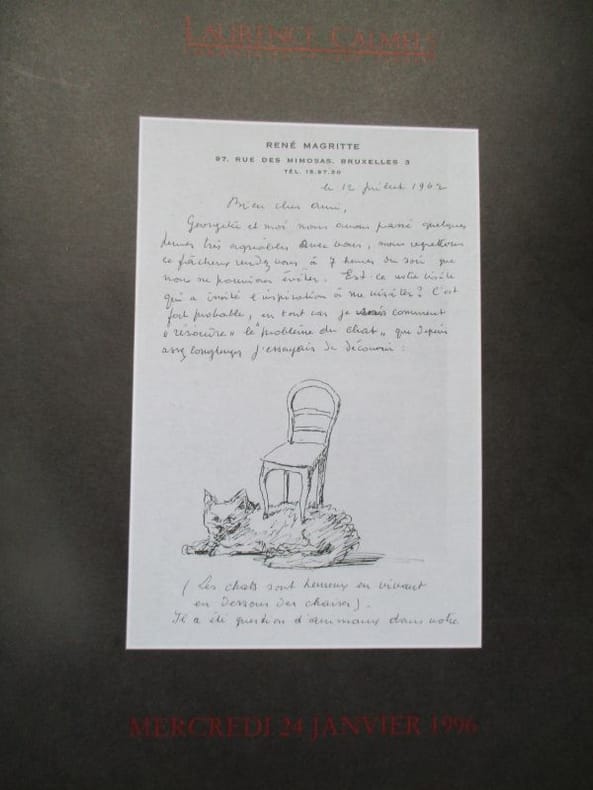 LAURENCE CALMELS
RENÉ MAGRITTE
97, RUE DES MIMOSAS, BRUXELLES 3
TÉL. 15.97.30
le 12 juillet 1962
Bien cher ami,
Georgette et moi nous avons passé quelques
heures très agréables avec vous, nous regrettons
ce fâcheux rendez-vous à 7 heures du soir que
nous ne pouvions éviter. Est-ce votre visite
qui a invité l'inspiration à me visiter? C'est
fort probable, en tout cas je sais comment
"résoudre" le "problème du chat" que depuis
assez longtemps j'essayais de découvrir :
(Les chats sont heureux en vivant
en dessous des chaises).
Il a été question d'animaux dans votre
MERCREDI 24 JANVIER 1996